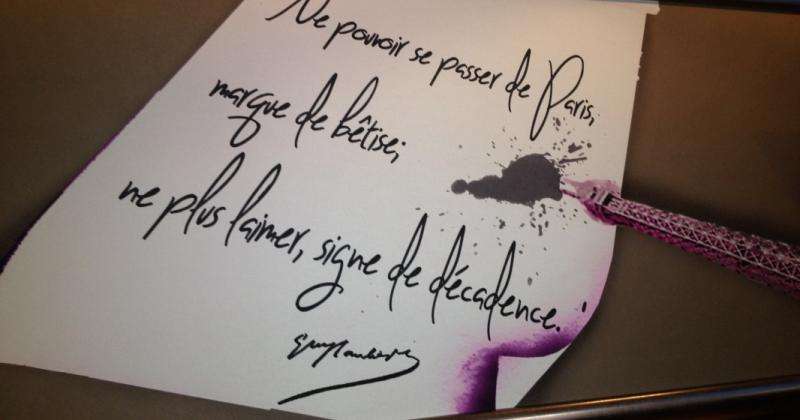 Ne pouvoir se passer de Paris,
marque de bêtise;
ne plus l'aimer, signe de décadence.